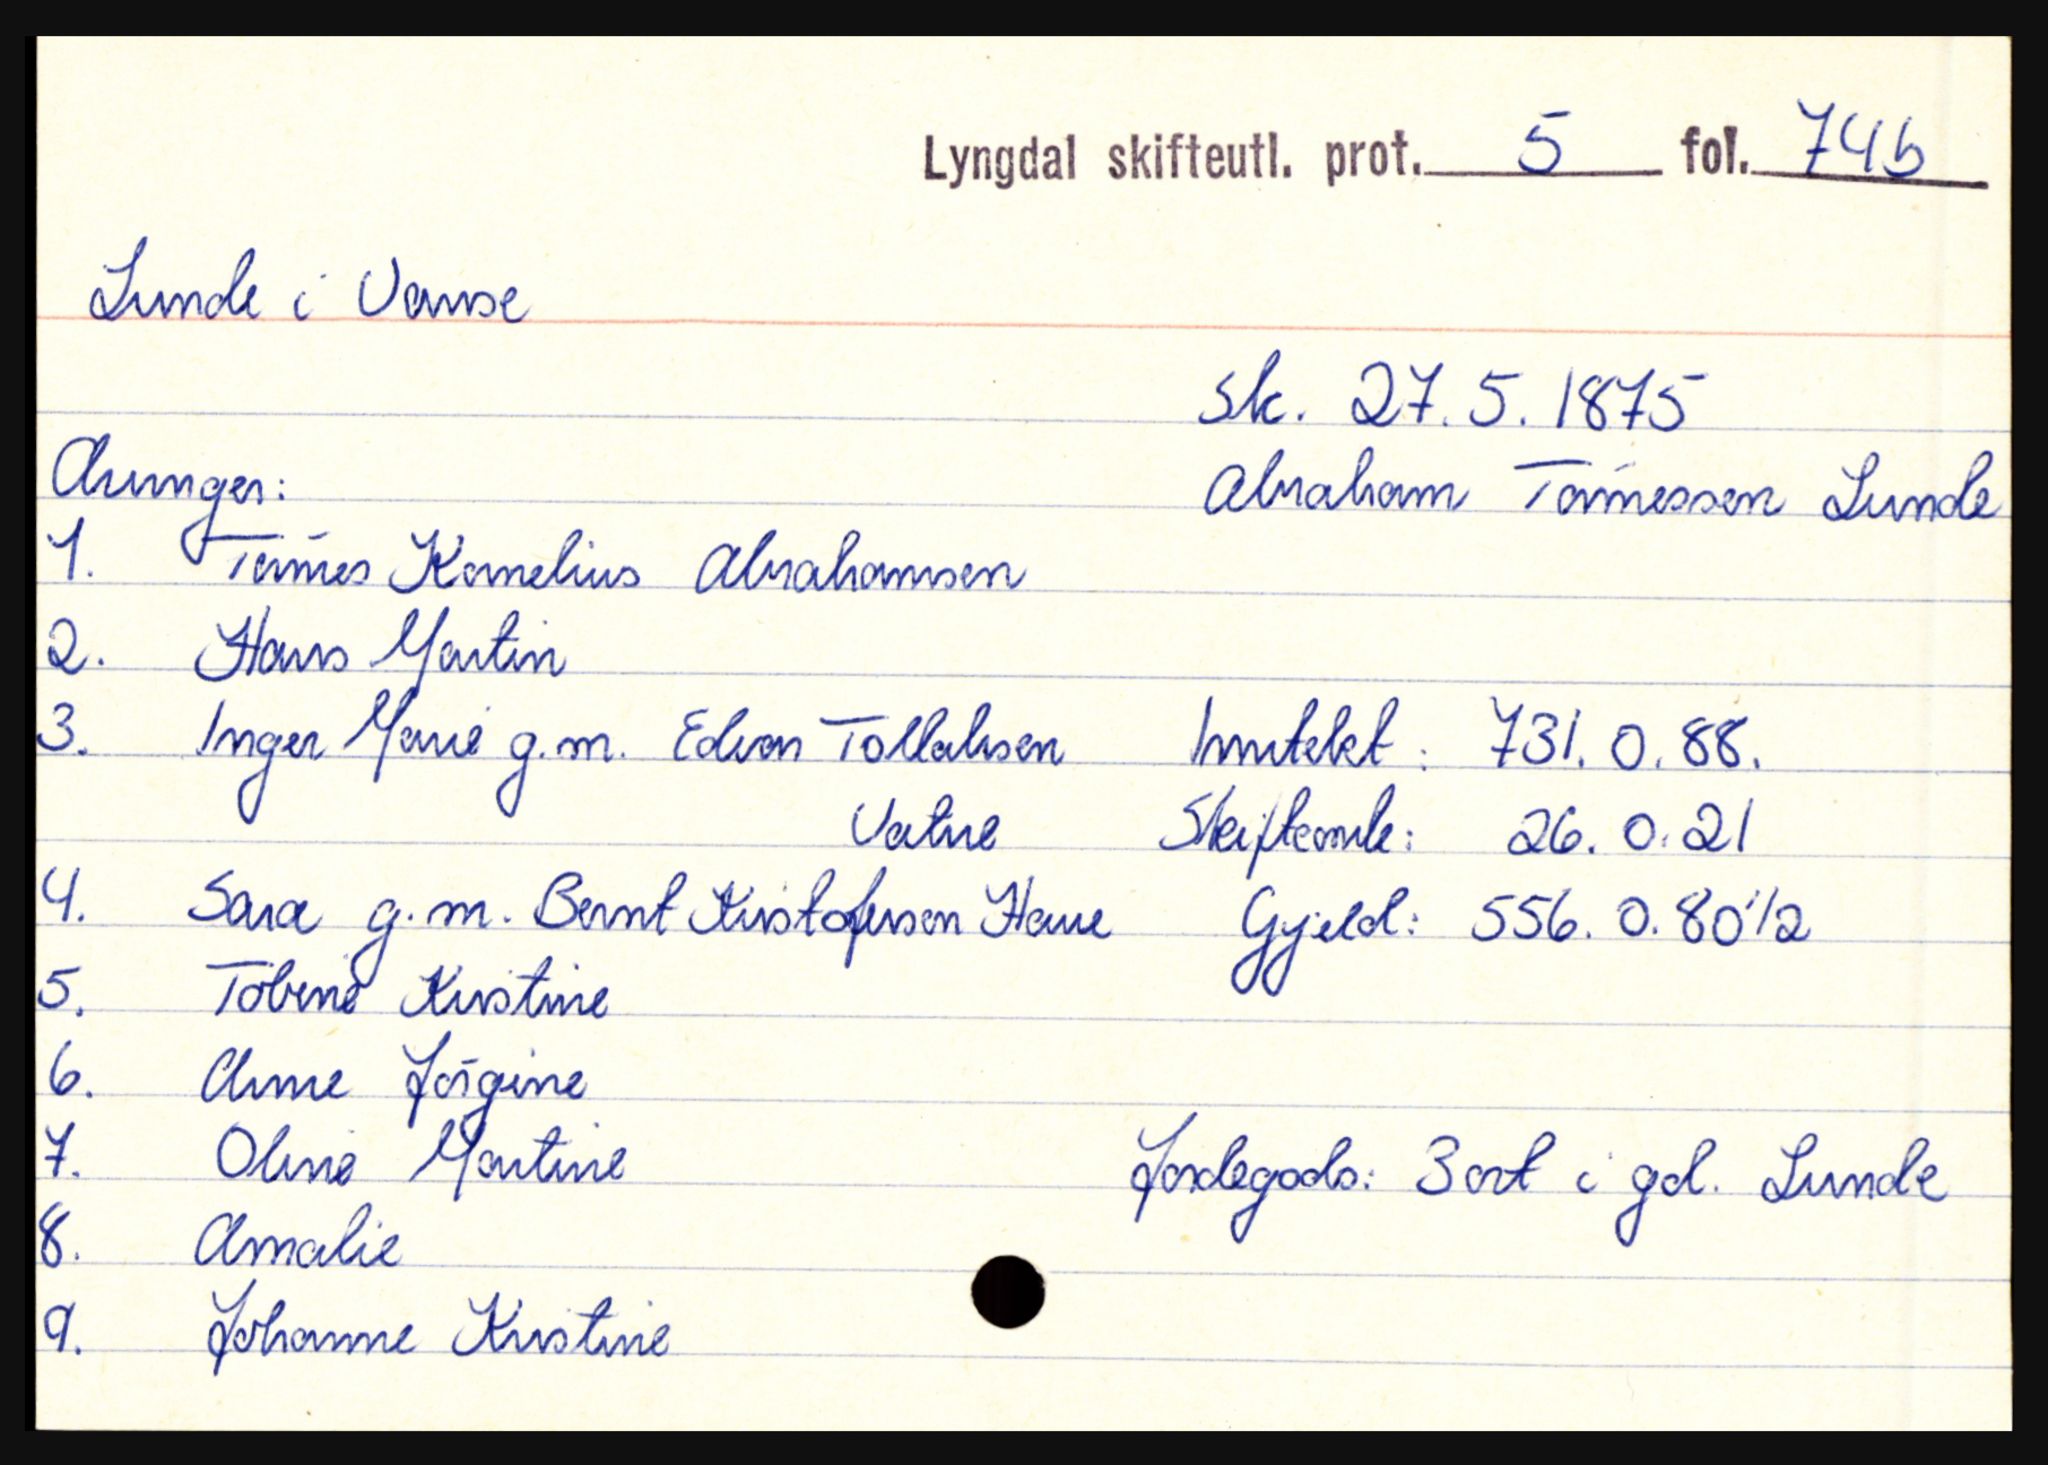 Lyngdal skifteutl. prot. 5 fol. 74b
Lunde i Vanse
Sk. 27.5.1875
Arvinger: Abraham Tønnessen Lunde
1. Tønnes Kornelius Abrahamsen
2. Hans Martin
3. Inger Marie g.m. Edvan Tollaksen Inntekt: 731.0.88.
Vatne Skifteomk: 26.0.21
4. Sara g.m. Bernt Kristofersen Haue Gjeld: 556.0.80 1/2
5. Tobine Kristine
6. Anne Jørgine
7. Oline Martine Jordegods: 3 ort i gd. Lunde
8. Amalie
9. Johanne Kristine